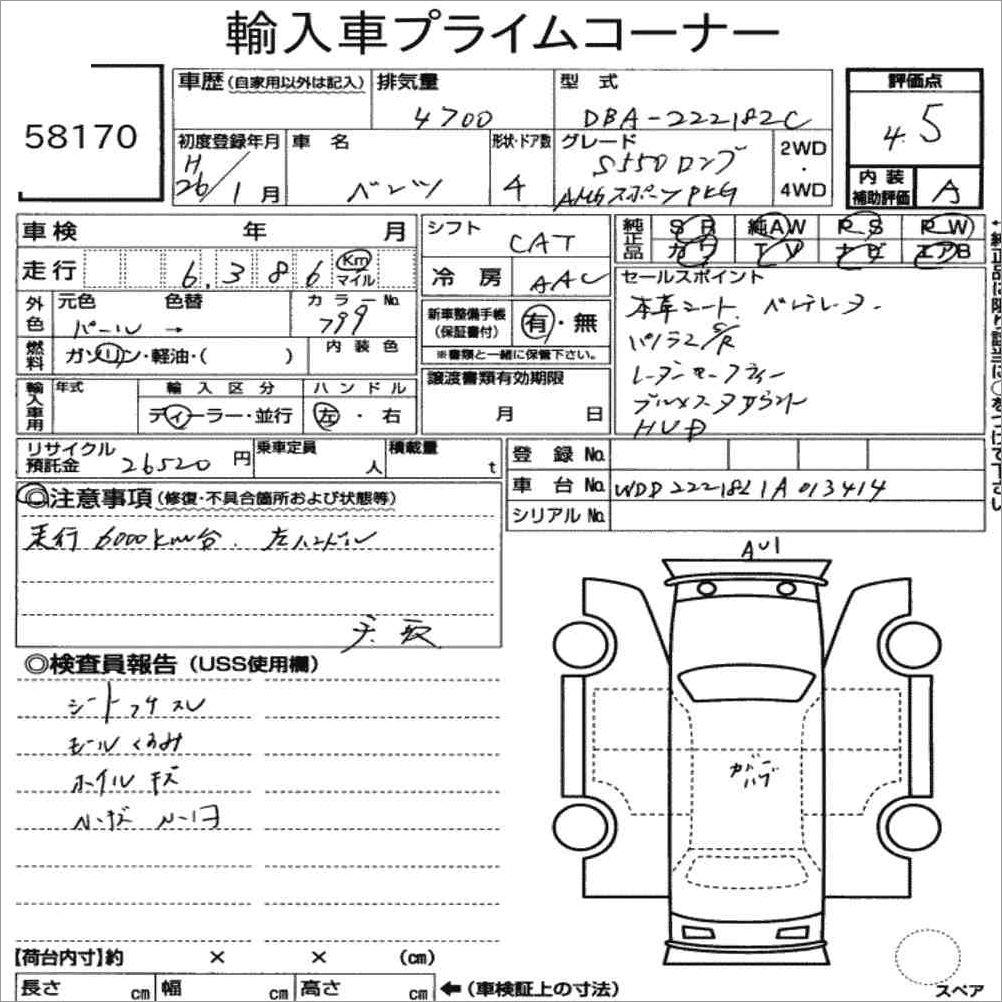 輸入車プライムコーナー
58170
車歴(自家用以外は記入) 排気量 4700 型式 DBA-222182C 評価点 4.5
初度登録年月 H26/1月 車名 ベンツ 形状・ドア数 4 グレード S550ロング AMGスポーツPKG 2WD・4WD
内装補助評価 A
車検 年 月 シフト CAT 純正品 SR 純AW PS PW
走行 6,386 Km マイル 冷房 AAC カワ TV ナビ エアB
外色 元色 パール → 色替 カラーNo. 799 新車整備手帳(保証書付) 有・無 ※書類と一緒に保管下さい。
燃料 ガソリン・軽油・( ) 内装色
セールスポイント
本革シート. ベンテレータ.
パノラマS/R
レーダーセーフティー
ブルメスタサウンド
HUD
輸入車用 年式 輸入区分 ディーラー・並行 ハンドル 左・右 譲渡書類有効期限 月 日
リサイクル預託金 26520円 乗車定員 人 積載量 t
登録No.
車台No. WDD2221821A013414
シリアルNo.
◎注意事項(修復・不具合箇所および状態等)
走行6000km台. 左ハンドル
◎検査員報告(USS使用欄)
シートフケスレ
モールくるみ
ホイルキズ
A41
カバー
ハゲ
【荷台内寸】約 × × (cm)
長さ cm 幅 cm 高さ cm ←(車検証上の寸法)
スペア